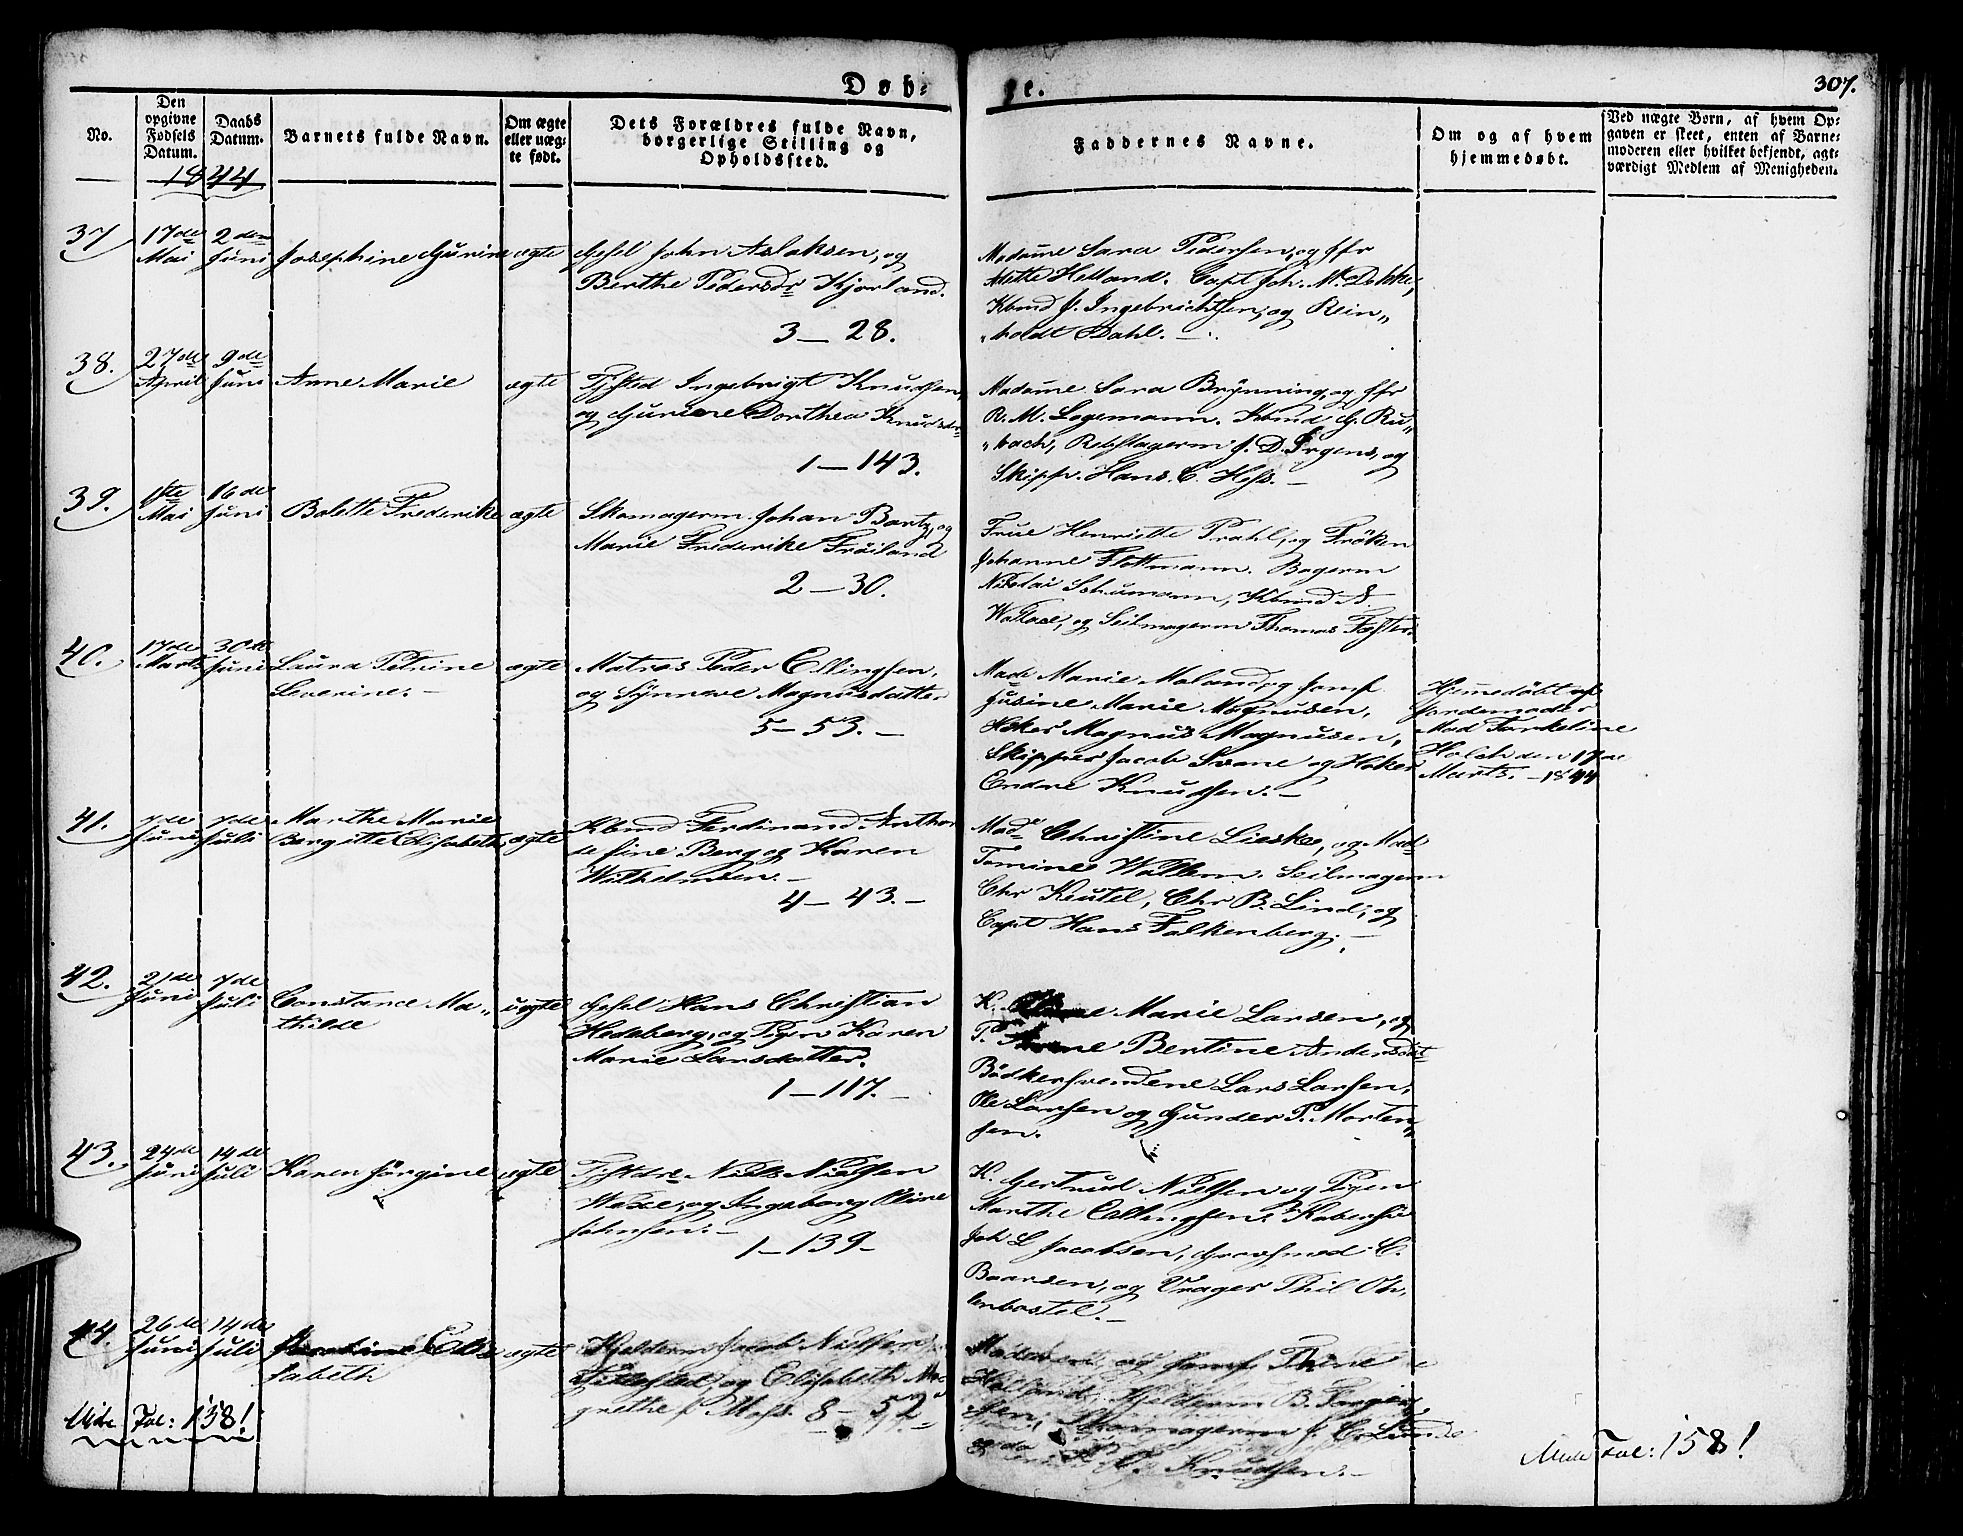 Døb- te. 307.
No.
Den opgivne Fødsels Datum.
Daabs Datum.
Barnets fulde Navn.
Om ægte eller uægte født.
Dets Forældres fulde Navn, borgerlige Stilling og Opholdssted.
Faddernes Navne.
Om og af hvem hjemmedøbt.
Ved uægte Born, af hvem Opgaven er skeet, enten af Barnemoderen eller hvilket bekjendt, agtværdigt Medlem af Menigheden.
1844
37 17de Mai 2den Juni Josephine Gurine ægte
Gesel John Aslaksen, og
Berthe Pedersdr Kjorland.
3 — 28.
Madame Sara Pedersen, og Jfr
Adette Helland. Capt Joh. M. Dokke,
Kbmd J. Ingebrichtsen, og Rein„
„holdt Dahl. —
38. 27de April 9de Juni Anne Marie ægte
Ingebrigt Knudsen,
og Guriane Dorthea Knudsdr
1 — 143.
Madame Sara Brynning, og Jfr
R. M. Logemann. Kbmd G. Ru„
„bach, Rebslagerm J. D. Irgens, og
Skipp. Hans. C. Hess. —
39. 1ste Mai 16de Juni Bolette Frederike ægte
Skomagerm Johan Bartz, og
Marie Frederike Fröiland
2 — 30.
Frue Henriette Prahl, og Fröken
Johanne Flottmann. Bagerm
Nikolai Schumann, Kbmd A.
Wallace, og Seilmagerm Thomas
40. 17de Marts 30te Juni Laura Petrine
Severine. — ægte
Matros Peder Ellingsen,
og Synneve Magnusdatter
5 — 53. —
Made Marie Maland, og Jomf
Gusine Marie Magnusen,
Höker Magnus Magnusen,
Skipper Jacob Svane og Höker
Endre Knudsen. —
Hjemedöbt af
Jordemoder
Mad Torkeline
Holch den 17de
Marts. — 1844
41. 7de Juni 7de Juli Marthe Marie
Bergitte Elisabeth ægte
Kbmd Ferdinand Antho
Berg og Karen
Wilhelmsen. —
4 — 43. —
Made Christine Lieske, og Made
Tomine Wallem. Seilmagerm
Chr Keutel, Chr B. Lind, og
Capt Hans Falkenberg. —
42. 21de Juni 7de Juli Constance Ma„
thilde uægte
Gesel Hans Christian
Hedeberg, og Pgn Karen
Marie Larsdatter.
1 — 117. —
K. Marie Larsen, og
P. Bertine Andersdat
Bödkersvendene Lars Larsen,
Ole Larsen og Gunder P. Morten„
sen.
43. 24de Juni 14de Juli Karen Jörgine ægte
Niels Nielsen
og Ingeborg Oline
Johnsen. —
1 — 139 —
K. Gertrud Nielsen og Pigen
Marthe Ellingsen.
Joh L Jacobsen, C.
Baarsen, og Vrager Thil Oh„
lenbostel. —
44. 26de Juni 14de Juli Elis
sabeth ægte
Jacob Nielsen
og Elisabeth Ma
grethe Moss. 8 — 52
og Jomf Thrine
Helland, B. Torger„
sen, Skomagerm J. C. Lunde
og Knudsen. —
Vide Tal: 158!
Vide Tal: 158!